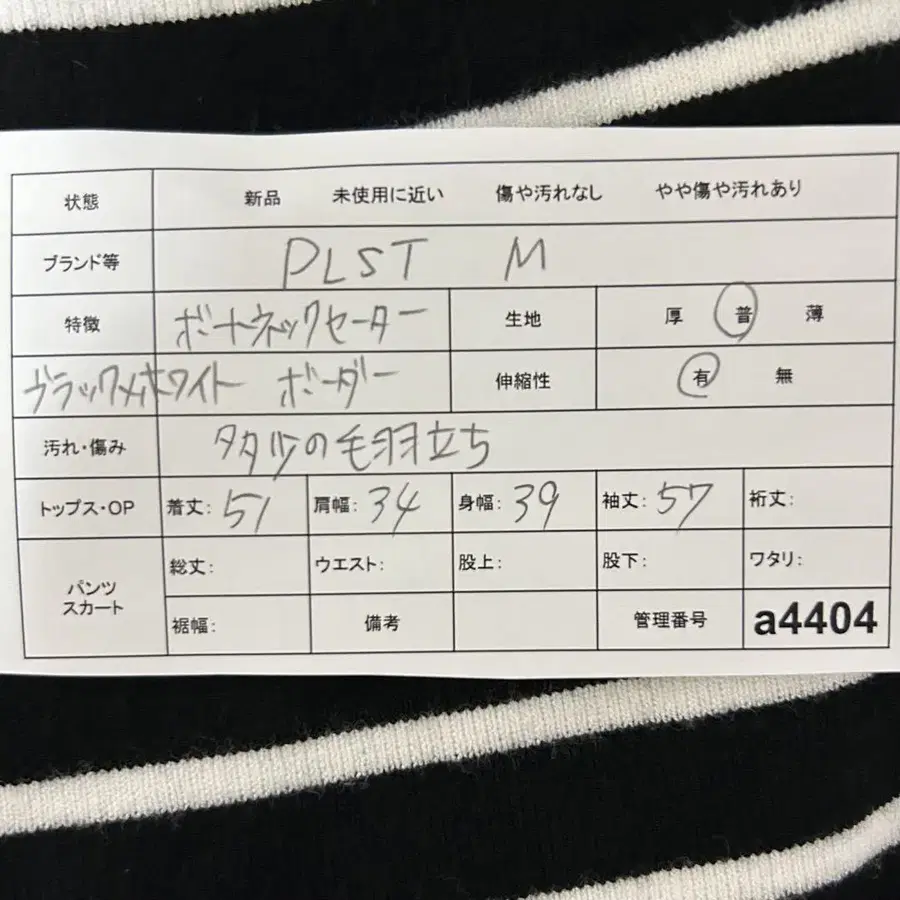 状態 新品 未使用に近い 傷や汚れなし やや傷や汚れあり
ブランド等 PLST M
特徴 ボートネックセーター 生地 厚 普 薄
ブラック×ホワイト ボーダー 伸縮性 有 無
汚れ・傷み 多少の毛羽立ち
トップス・OP 着丈: 51 肩幅: 34 身幅: 39 袖丈: 57 裄丈:
パンツ スカート 総丈: ウエスト: 股上: 股下: ワタリ:
裾幅: 備考 管理番号 a4404